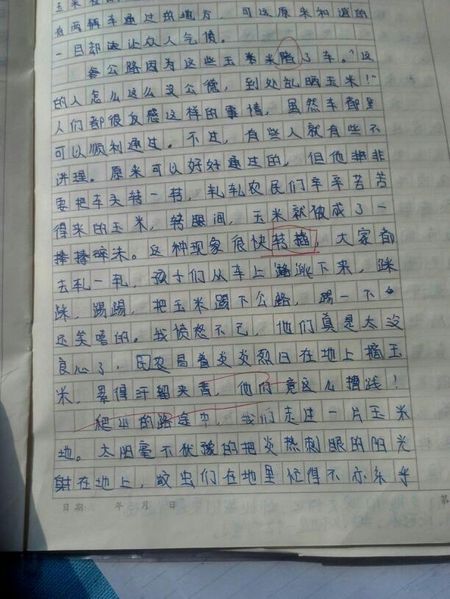 有两辆车通过的地方，可这原来和谐的
一目却被让众人气愤。
条公路因为这些玉米来踏了车。"这
的人怎么这么没公德，到处乱晒玉米！"
人们都很反感这样的事情，虽然车都是
可以顺利通过。不过，有些人就有些不
讲理。原来可以好好通过的，但他非
要把车头转一转，轧轧农民们辛辛苦苦
得来的玉米，转眼间，玉米就做成了一
棒棒碎末。这种现象很快转播，大家都
去轧一轧，孩子们从车上跳下来，踩
踩，踢踢，把玉米踢下公路，踢一不
还笑嘻的。我愤怒不已，他们真是太没
良心了，农民冒着炎炎烈日在地上摘玉
米，累得汗流夹背，他们竟这么糟践！
爬山的路途中，我们走进一片玉米
地。太阳毫不犹豫的把炎热刺眼的阳光
射在地上，蚊虫们在地里忙得不亦乐乎
日期：　年　月　日
第